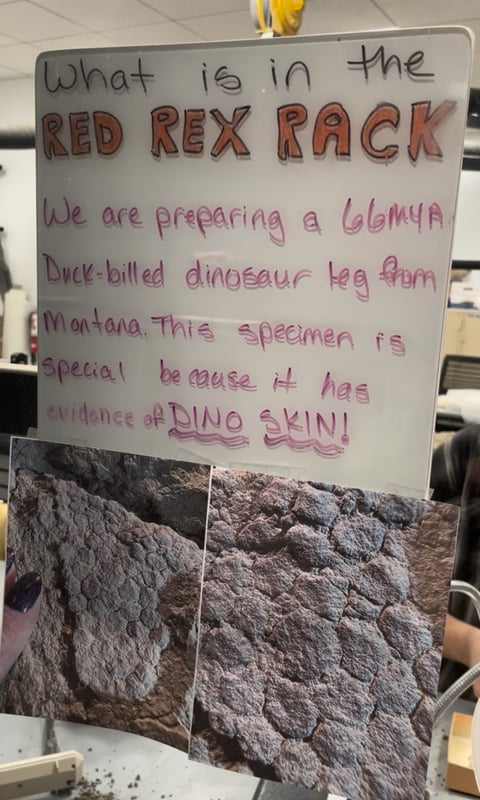 What is in the
RED REX RACK
We are preparing a 66MYA
Duck-billed dinosaur leg from
Montana. This specimen is
special because it has
evidence of DINO SKIN!